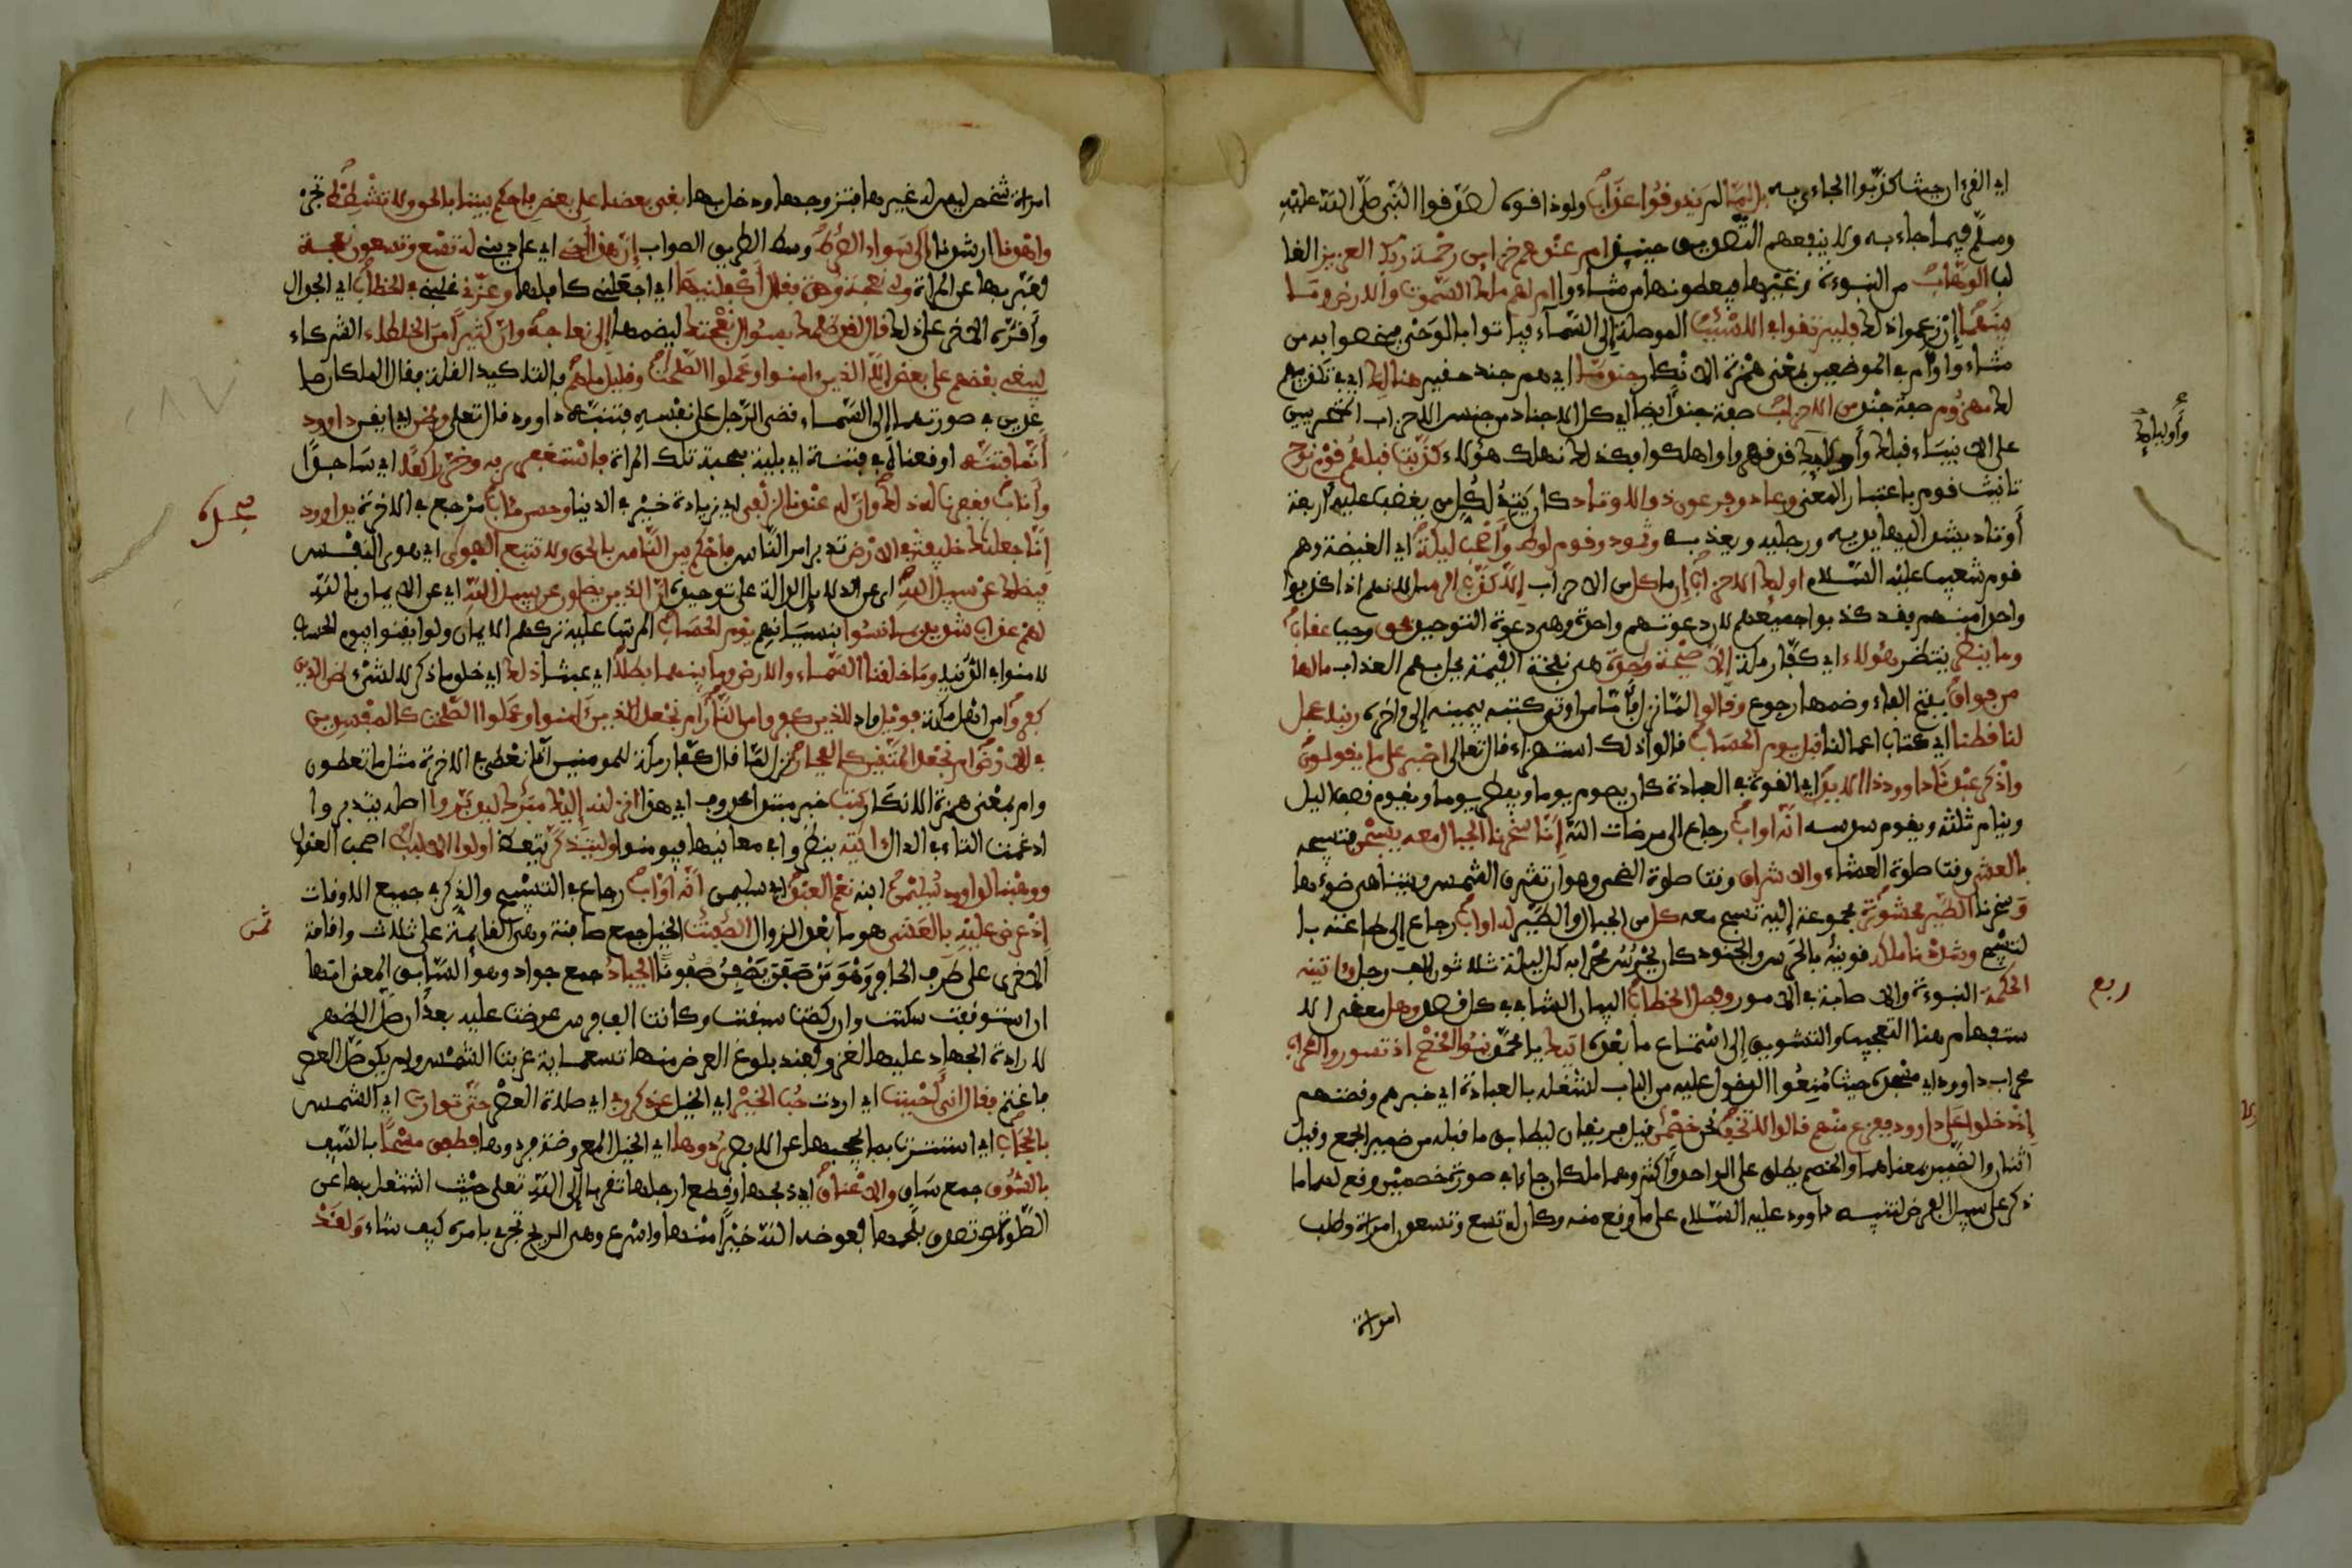 اي القرءان حيث كذبوا الجاءي به بل لما لم يذوقوا عذاب ولو ذاقوه لصدقوا النبي صلى الله عليه
وسلم فيما جاء به ولا ينفعهم التصديق حينئذ ام عندهم خزاين رحمة ربك العزيز الغا
لب الوهاب من النبوءة وغيرها فيعطونها من شاءوا ام لهم ملك السموت والارض وما
بينهما ان زعموا ذلك فليرتقوا في الاسبب الموصلة الى السماء فياتوا بالوحي فيخصوا به من
شاءوا وام في الموضعين بمعنى همزة الانكار جند ما اي هم جند حقير هنالك اي في تكذيبهم
لك مهزوم صفة جند من الاحزاب صفة جند ايضا اي كل الاجناد من جنس الاحزاب المتحزبين
على الانبياء قبلك واوليك قد قهروا واهلكوا فكذلك نهلك هؤلاء كذبت قبلهم قوم نوح
تانيث قوم باعتبار المعنى وعاد وفرعون ذو الاوتاد كان يتد لكل من يغضب عليه اربعة
أوتاد يشد اليها يديه ورجليه ويعذبه وثمود وقوم لوط وأصحب ليكة اي الغيضة وهم
قوم شعيب عليه السلام اوليك الاحزاب ان ما كل من الاحزاب الا كذب الرسل لانهم اذا كذبوا
واحدا منهم فقد كذبوا جميعهم لان دعوتهم واحدة وهي دعوة التوحيد فحق وجب عقاب
وما ينظر ينتظر هؤلاء اي كفار مكة الا صيحة وحدة هي نفخة القيمة تحل بهم العذاب ما لها
من فواق بفتح الفاء وضمها رجوع وقالوا لما نزل فاما من اوتي كتبه بيمينه الى ءاخره ربنا عجل
لنا قطنا اي كتاب اعمالنا قبل يوم الحساب قالوا ذلك استهزاء قال تعالى اصبر على ما يقولون
واذكر عبدنا داوود ذا الايد اي القوة في العبادة كان يصوم يوما ويفطر يوما ويقوم نصف اليل
وينام ثلثه ويقوم سدسه انه اواب رجاع الى مرضات الله إنا سخرنا الجبال معه يسبحن بتسبيحه
بالعشي وقت صلوة العشاء والاشراق وقت صلوة الضحى وهو ان تشرق الشمس ويتناهى ضوءها
وسخرنا الطير محشورة مجموعة إليه تسبح معه كل من الجبال والطير له اواب رجاع إلى طاعته با
لتسبيح وشددنا ملكه قويناه بالحرس والجنود كان يحرس محرابه كل ليلة ثلاثون الف رجل وءاتينه
الحكمة النبوءة والاصابة في الامور وفصل الخطاب البيان الشافي في كل قصد وهل معنى الا
ستفهام هنا التعجيب والتشويق إلى استماع ما بعده اتيك يا محمد نبؤا الخصم اذ تسوروا المحراب
محراب داوود اي مسجده حيث منعوا الدخول عليه من الباب لشغله بالعبادة اي خبرهم وقصتهم
إذ دخلوا على داوود ففزع منهم قالوا لا تخف نحن خصمن قيل فريقان ليطابق ما قبله من ضمير الجمع وقيل
اثنان والضمير بمعناهما والخصم يطلق على الواحد واكثر وهما ملكان جاءا في صورة خصمين وقع لهما ما
ذكر على سبيل الفرض لتنبيه داوود عليه السلام على ما وقع منه وكان له تسع وتسعون امراة وطلب
امراة
وأوليك
ربع
امراة شخص ليس له غيرها فتزوجها ودخل بها بغى بعضنا على بعض فاحكم بيننا بالحق ولا تشطط تجر
واهدنا ارشدنا إلى سواء الصراط وسط الطريق الصواب إن هذا أخي اي على ديني له تسع وتسعون نعجة
يعبر بها عن المراة ولي نعجة وحدة فقال أكفلنيها اي اجعلني كافلها وعزني غلبني في الخطاب اي الجدال
وأقره الاخر على ذلك قال لقد ظلمك بسؤال نعجتك ليضمها إلى نعاجه وان كثيرا من الخلطاء الشركاء
ليبغي بعضهم على بعض الا الذين ءامنوا وعملوا الصلحت وقليل ما هم ما لتاكيد القلة فقال الملكان صا
عدين في صورتهما إلى السماء قضى الرجل على نفسه فتنبه داوود قال تعلى وظن اي ايقن داوود
أنما فتنه اوقعناه في فتنة اي بلية بمحبة تلك المراة فاستغفر ربه وخر راكعا اي ساجدا
وأناب فغفرنا له ذلك وان له عندنا لزلفى اي زيادة خير في الدنيا وحسن مئاب مرجع في الاخرة يداوود
انا جعلنك خليفة في الارض تدبر امر الناس فاحكم بين الناس بالحق ولا تتبع الهوى اي هوى النفس
فيضلك عن سبيل الله اي عن الدلايل الدالة على توحيده ان الذين يضلون عن سبيل الله اي عن الايمان بالله
لهم عذاب شديد بما نسوا بنسيانهم يوم الحساب المرتب عليه تركهم الايمان ولو ايقنوا بيوم الحساب
لامنوا في الدنيا وما خلقنا السماء والارض وما بينهما بطلا اي عبثا ذلك اي خلق ما ذكر لا لشيء ظن الذين
كفروا من اهل مكة فويل واد للذين كفروا من النار أم نجعل الذين ءامنوا وعملوا الصلحت كالمفسدين
في الارض ام نجعل المتقين كالفجار نزل لما قال كفار مكة للمومنين انا نعطى في الاخرة مثل ما تعطون
وام بمعنى همزة الانكار كتب خبر مبتدا محذوف اي هذا انزلنه إليك مبرك ليدبروا اصله يتدبروا
ادغمت التاء في الدال ءايته ينظروا في معانيها فيومنوا وليتذكر يتعظ اولوا الالبب اصحب العقول
ووهبنا لداوود سليمن ابنه نعم العبد اي سليمن انه اواب رجاع في التسبيح والذكر في جميع الاوقات
إذ عرض عليه بالعشي هو ما بعد الزوال الصفنت الخيل جمع صافنة وهي القايمة على ثلاث واقامة
الاخرى على طرف الحافر وهو من صفن يصفن صفونا الجياد جمع جواد وهو السابق المعنى انها
ان استوقفت سكنت وان ركضت سبقت وكانت الف فرس عرضت عليه بعد ان صلى الظهر
لارادة الجهاد عليها لغزو فعند بلوغ العرض منها تسعماية غربت الشمس ولم يكن صلى العصر
فاغتم فقال اني احببت اي اردت حب الخير اي الخيل عن ذكر ربي اي صلاة العصر حتى توارت اي الشمس
بالحجاب اي استترت بما يحجبها عن الابصر ردوها اي الخيل المعروضة فردوها فطفق مسحا بالسيف
بالسوق جمع ساق والاعناق اي ذبحها وقطع ارجلها تقربا إلى الله تعلى حيث اشتغل بها عن
الصلوة وتصدق بلحمها فعوضه الله خيرا منها واسرع وهي الريح تجري بامره كيف شاء ولقد
ثمن